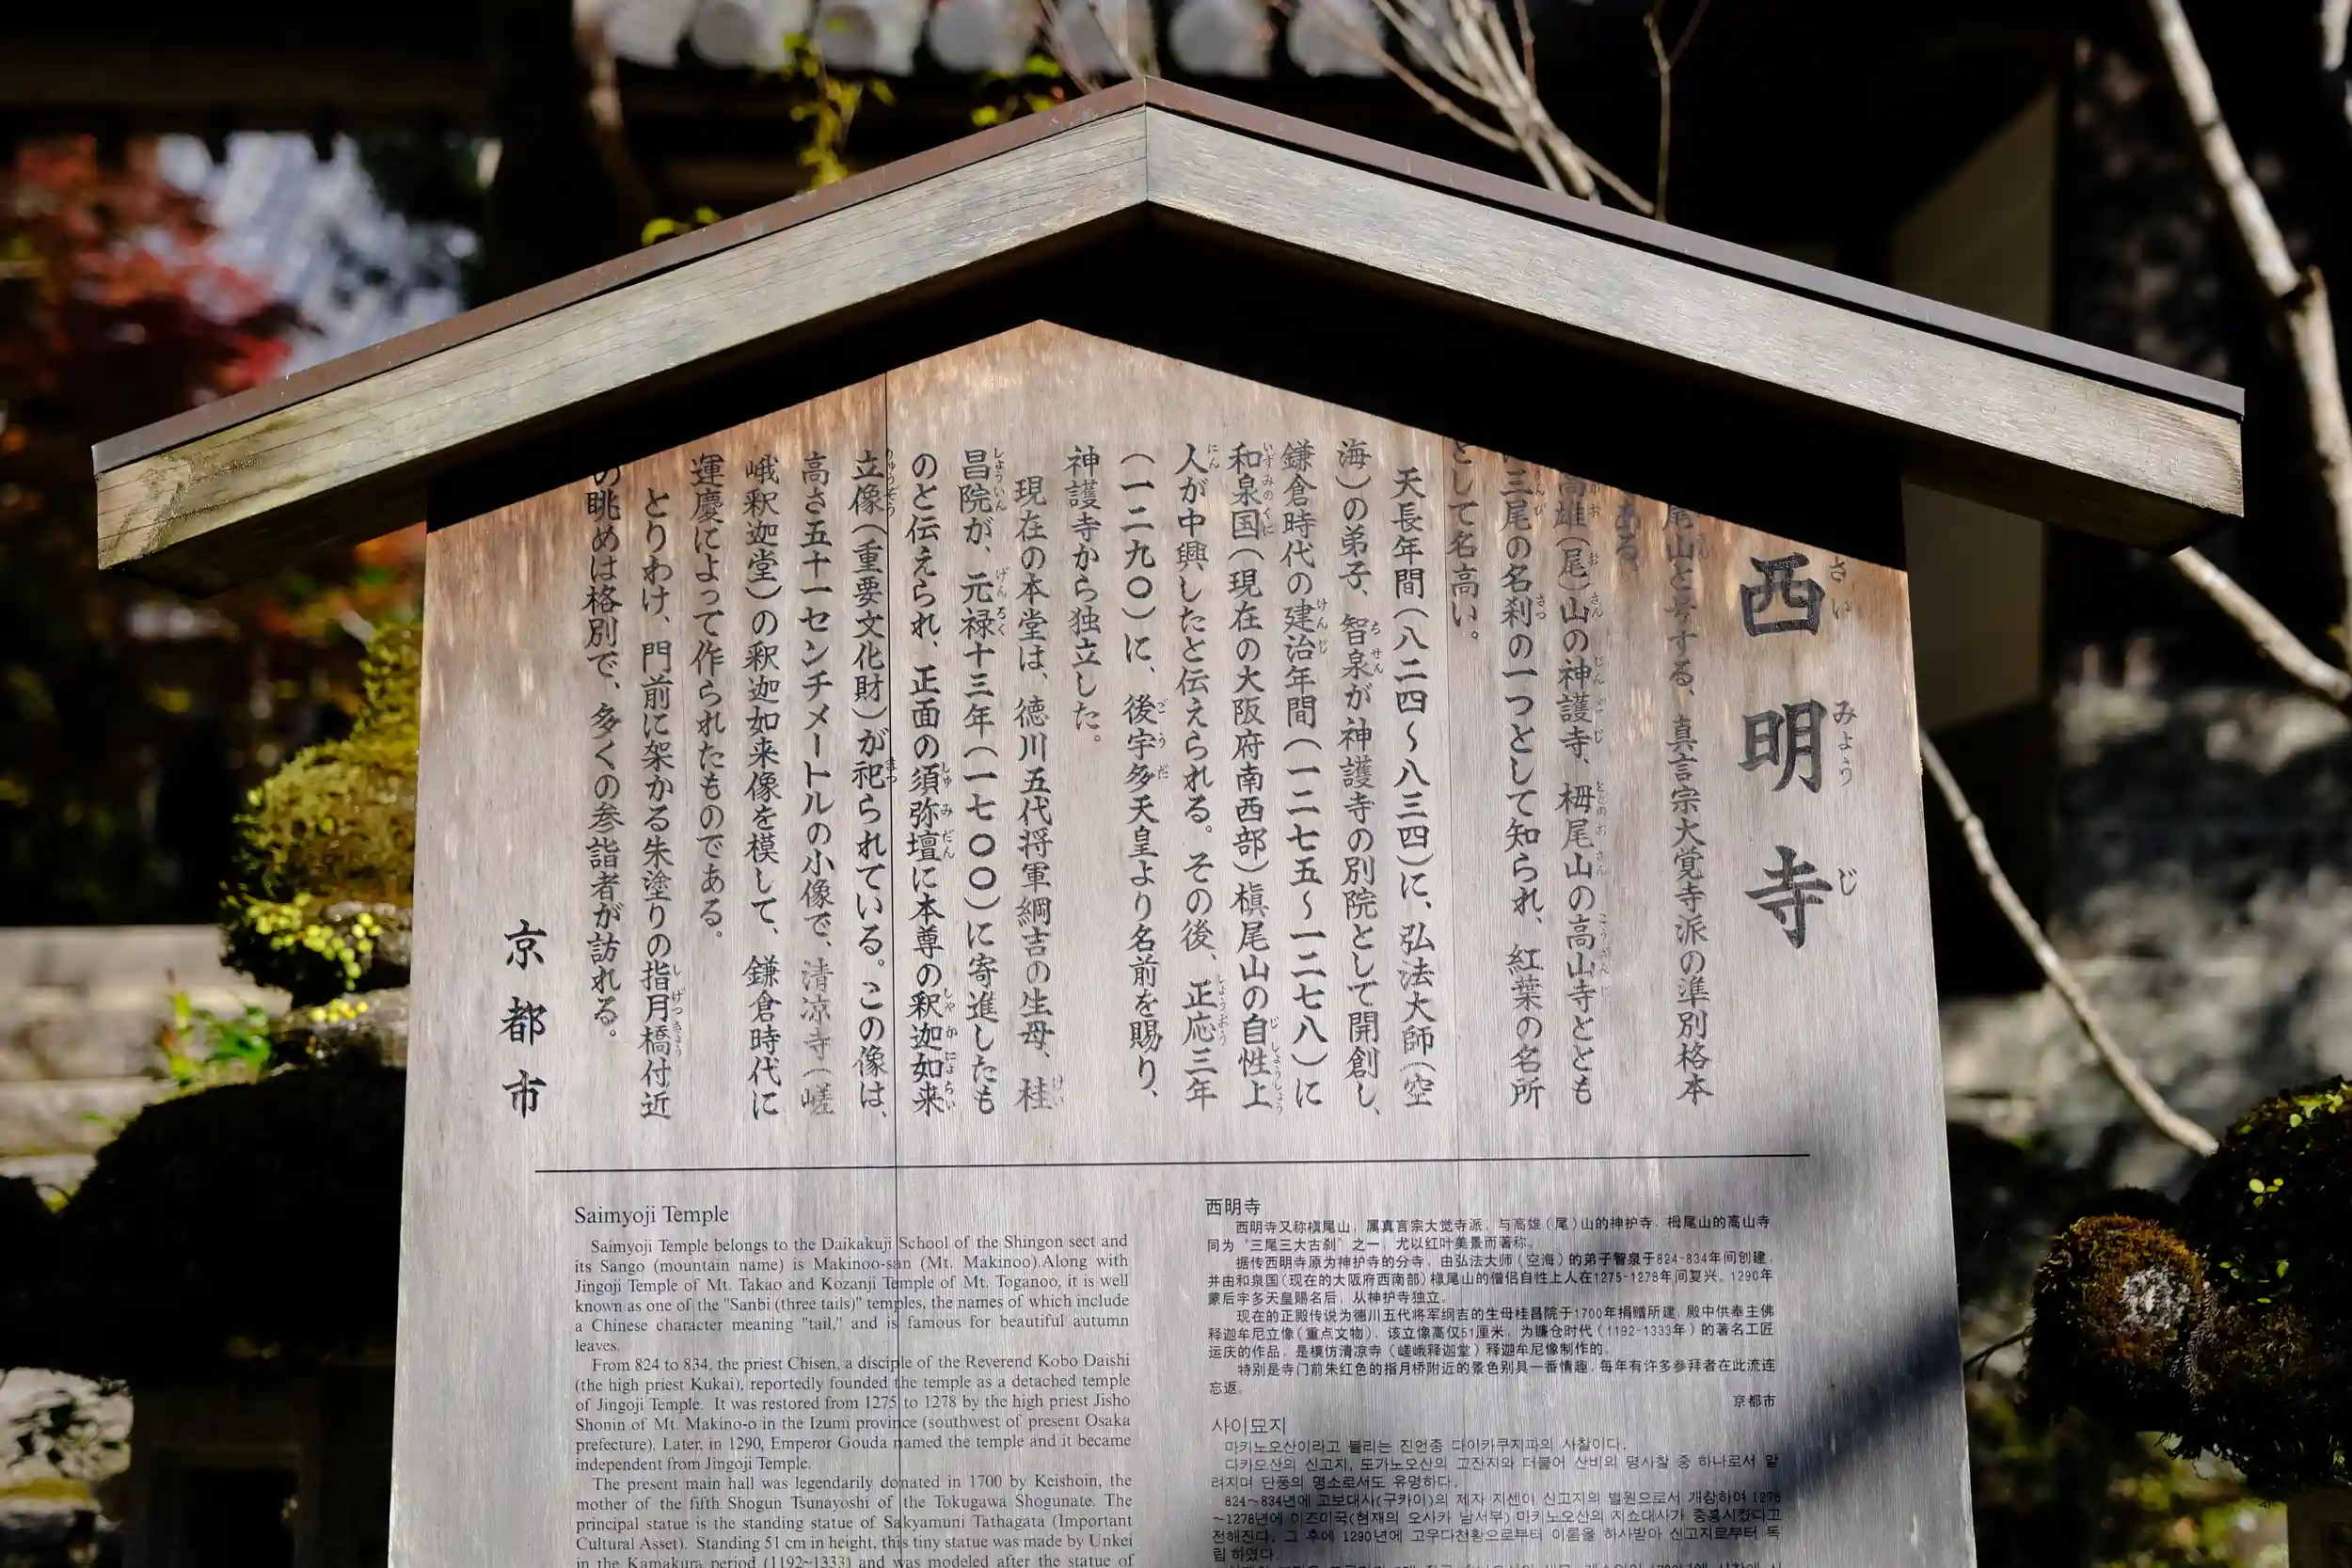 西明寺
さいみょうじ
尾山と号する、真言宗大覚寺派の準別格本
ある。
高雄(尾)山の神護寺、栂尾山の高山寺ととも
三尾の名刹の一つとして知られ、紅葉の名所
として名高い。
天長年間(八二四〜八三四)に、弘法大師(空
海)の弟子、智泉が神護寺の別院として開創し、
鎌倉時代の建治年間(一二七五〜一二七八)に
和泉国(現在の大阪府南西部)槇尾山の自性上
人が中興したと伝えられる。その後、正応三年
(一二九〇)に、後宇多天皇より名前を賜り、
神護寺から独立した。
現在の本堂は、徳川五代将軍綱吉の生母、桂
昌院が、元禄十三年(一七〇〇)に寄進したも
のと伝えられ、正面の須弥壇に本尊の釈迦如来
立像(重要文化財)が祀られている。この像は、
高さ五十一センチメートルの小像で、清凉寺(嵯
峨釈迦堂)の釈迦如来像を模して、鎌倉時代に
運慶によって作られたものである。
とりわけ、門前に架かる朱塗りの指月橋付近
の眺めは格別で、多くの参詣者が訪れる。
京都市
Saimyoji Temple
Saimyoji Temple belongs to the Daikakuji School of the Shingon sect and
its Sango (mountain name) is Makinoo-san (Mt. Makinoo).Along with
Jingoji Temple of Mt. Takao and Kozanji Temple of Mt. Toganoo, it is well
known as one of the "Sanbi (three tails)" temples, the names of which include
a Chinese character meaning "tail," and is famous for beautiful autumn
leaves.
From 824 to 834, the priest Chisen, a disciple of the Reverend Kobo Daishi
(the high priest Kukai), reportedly founded the temple as a detached temple
of Jingoji Temple. It was restored from 1275 to 1278 by the high priest Jisho
Shonin of Mt. Makino-o in the Izumi province (southwest of present Osaka
prefecture). Later, in 1290, Emperor Gouda named the temple and it became
independent from Jingoji Temple.
The present main hall was legendarily donated in 1700 by Keishoin, the
mother of the fifth Shogun Tsunayoshi of the Tokugawa Shogunate. The
principal statue is the standing statue of Sakyamuni Tathagata (Important
Cultural Asset). Standing 51 cm in height, this tiny statue was made by Unkei
in the Kamakura period (1192~1333) and was modeled after the statue of
西明寺
西明寺又称槇尾山，属真言宗大觉寺派，与高雄（尾）山的神护寺，栂尾山的高山寺
同为“三尾三大古刹”之一，尤以红叶美景而著称。
据传西明寺原为神护寺的分寺，由弘法大师（空海）的弟子智泉于824-834年间创建，
并由和泉国（现在的大阪府西南部）槇尾山的僧侣自性上人在1275-1278年间复兴。1290年
蒙后宇多天皇赐名后，从神护寺独立。
现在的正殿传说为德川五代将军纲吉的生母桂昌院于1700年捐赠所建，殿中供奉主佛
释迦牟尼立像（重点文物），该立像高仅51厘米，为镰仓时代（1192-1333年）的著名工匠
运庆的作品，是模仿清凉寺（嵯峨释迦堂）释迦牟尼像制作的。
特别是寺门前朱红色的指月桥附近的景色别具一番情趣，每年有许多参拜者在此流连
忘返。
京都市
사이묘지
마키노오산이라고 불리는 진언종 다이카쿠지파의 사찰이다.
다카오산의 신고지, 도가노오산의 고잔지와 더불어 산비의 명사찰 중 하나로서 알
려지며 단풍의 명소로서도 유명하다.
824～834년에 고보대사(구카이)의 제자 지센이 신고지의 별원으로서 개창하여 1275
～1278년에 이즈미국(현재의 오사카 남서부) 마키노오산의 지쇼대사가 중흥시켰다고
전해진다. 그 후에 1290년에 고우다천황으로부터 이름을 하사받아 신고지로부터 독
립하였다.